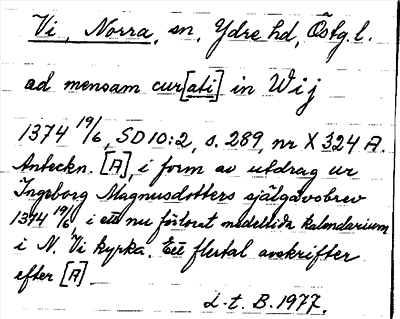 Vi, Norra, sn, Ydre hd, Östg.l.
ad mensam cur[ati] in Wij
1374 19/6, SD 10:2, s. 289, nr X 324 A.
Anteckn. [A], i form av utdrag ur
Ingeborg Magnusdotters själgåvobrev
1374 19/6, i ett nu förlorat medeltida kalendarium
i N. Vi kyrka. Ett flertal avskrifter
efter [A].
L-t. B. 1977.